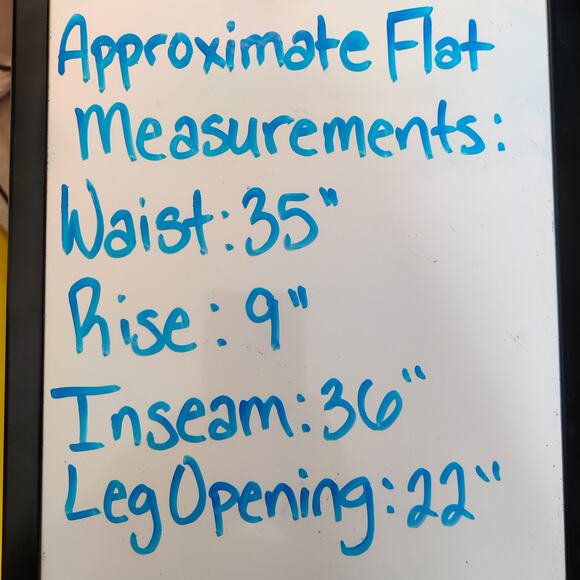 Approximate Flat
Measurements:
Waist: 35"
Rise: 9"
Inseam: 36"
Leg Opening: 22"